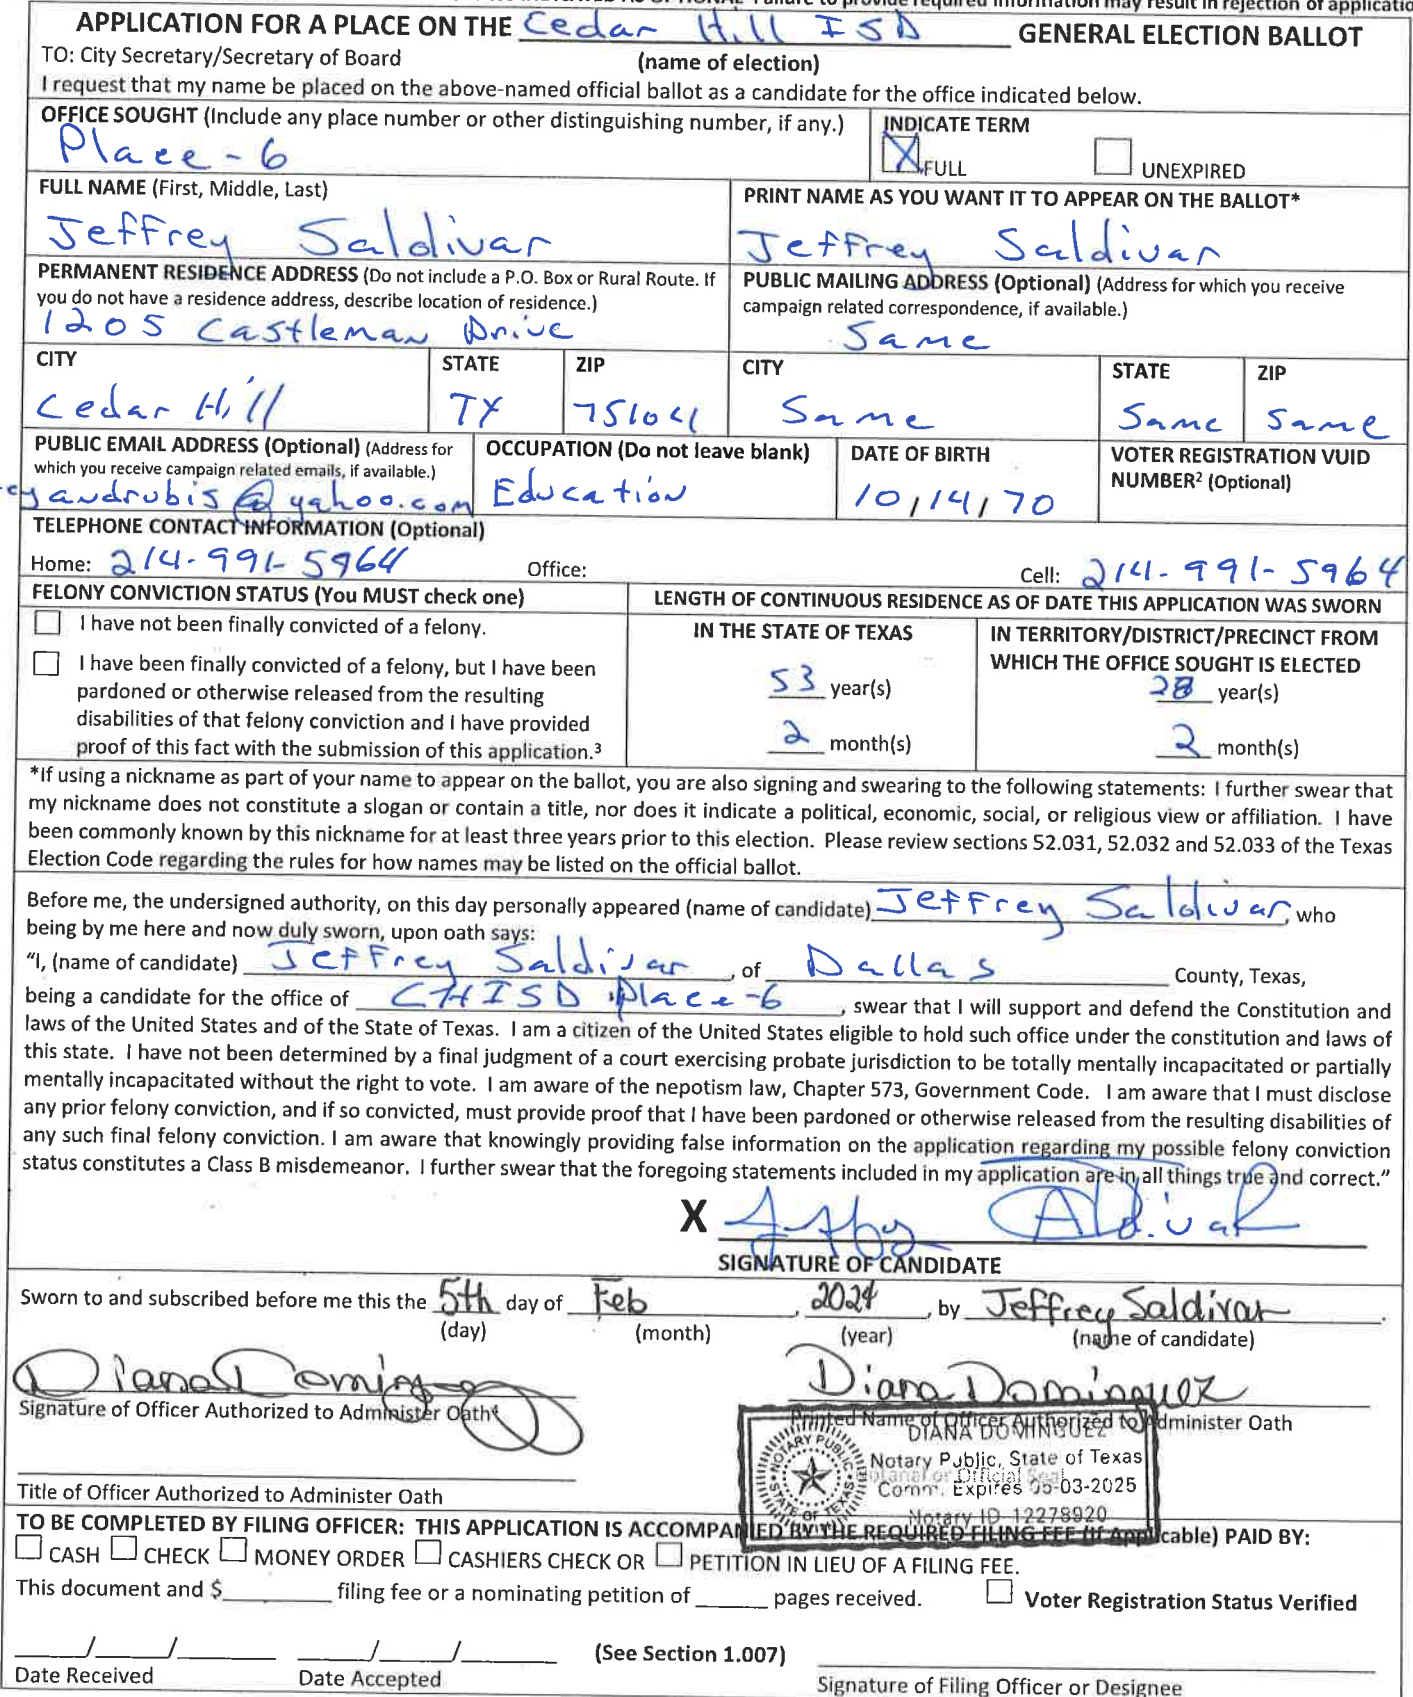 provide required information may result in rejection of applicatio
APPLICATION FOR A PLACE ON THE Cedar Hill ISD GENERAL ELECTION BALLOT
TO: City Secretary/Secretary of Board (name of election)
I request that my name be placed on the above-named official ballot as a candidate for the office indicated below.
OFFICE SOUGHT (Include any place number or other distinguishing number, if any.) INDICATE TERM
Place-6 X FULL UNEXPIRED
FULL NAME (First, Middle, Last) PRINT NAME AS YOU WANT IT TO APPEAR ON THE BALLOT*
Jeffrey Saldivar Jeffrey Saldivar
PERMANENT RESIDENCE ADDRESS (Do not include a P.O. Box or Rural Route. If PUBLIC MAILING ADDRESS (Optional) (Address for which you receive
you do not have a residence address, describe location of residence.) campaign related correspondence, if available.)
1205 Castleman Drive Same
CITY STATE ZIP CITY STATE ZIP
Cedar Hill TX 75104 Same Same Same
PUBLIC EMAIL ADDRESS (Optional) (Address for OCCUPATION (Do not leave blank) DATE OF BIRTH VOTER REGISTRATION VUID
which you receive campaign related emails, if available.) NUMBER² (Optional)
ey andrubis@yahoo.com Education 10/14/70
TELEPHONE CONTACT INFORMATION (Optional)
Home: 214-991-5964 Office: Cell: 214-991-5964
FELONY CONVICTION STATUS (You MUST check one) LENGTH OF CONTINUOUS RESIDENCE AS OF DATE THIS APPLICATION WAS SWORN
I have not been finally convicted of a felony. IN THE STATE OF TEXAS IN TERRITORY/DISTRICT/PRECINCT FROM
I have been finally convicted of a felony, but I have been WHICH THE OFFICE SOUGHT IS ELECTED
pardoned or otherwise released from the resulting 53 year(s) 28 year(s)
disabilities of that felony conviction and I have provided
proof of this fact with the submission of this application.³ 2 month(s) 2 month(s)
*If using a nickname as part of your name to appear on the ballot, you are also signing and swearing to the following statements: I further swear that
my nickname does not constitute a slogan or contain a title, nor does it indicate a political, economic, social, or religious view or affiliation. I have
been commonly known by this nickname for at least three years prior to this election. Please review sections 52.031, 52.032 and 52.033 of the Texas
Election Code regarding the rules for how names may be listed on the official ballot.
Before me, the undersigned authority, on this day personally appeared (name of candidate) Jeffrey Saldivar, who
being by me here and now duly sworn, upon oath says:
"I, (name of candidate) Jeffrey Saldivar, of Dallas County, Texas,
being a candidate for the office of CHISD Place-6, swear that I will support and defend the Constitution and
laws of the United States and of the State of Texas. I am a citizen of the United States eligible to hold such office under the constitution and laws of
this state. I have not been determined by a final judgment of a court exercising probate jurisdiction to be totally mentally incapacitated or partially
mentally incapacitated without the right to vote. I am aware of the nepotism law, Chapter 573, Government Code. I am aware that I must disclose
any prior felony conviction, and if so convicted, must provide proof that I have been pardoned or otherwise released from the resulting disabilities of
any such final felony conviction. I am aware that knowingly providing false information on the application regarding my possible felony conviction
status constitutes a Class B misdemeanor. I further swear that the foregoing statements included in my application are in all things true and correct."
X Jeffrey Saldivar
SIGNATURE OF CANDIDATE
Sworn to and subscribed before me this the 5th day of Feb, 2024, by Jeffrey Saldivar.
(day) (month) (year) (name of candidate)
Diana Dominguez Diana Dominguez
Signature of Officer Authorized to Administer Oath⁴ Printed Name of Officer Authorized to Administer Oath
DIANA DOMINGUEZ
Notary Public, State of Texas
Notarial or Official Seal
Comm. Expires 05-03-2025
Notary ID 12278920
NOTARY PUBLIC STATE OF TEXAS
Title of Officer Authorized to Administer Oath
TO BE COMPLETED BY FILING OFFICER: THIS APPLICATION IS ACCOMPANIED BY THE REQUIRED FILING FEE (If Applicable) PAID BY:
CASH CHECK MONEY ORDER CASHIERS CHECK OR PETITION IN LIEU OF A FILING FEE.
This document and $______ filing fee or a nominating petition of ______ pages received. Voter Registration Status Verified
___/___/______ ___/___/______ (See Section 1.007)
Date Received Date Accepted Signature of Filing Officer or Designee